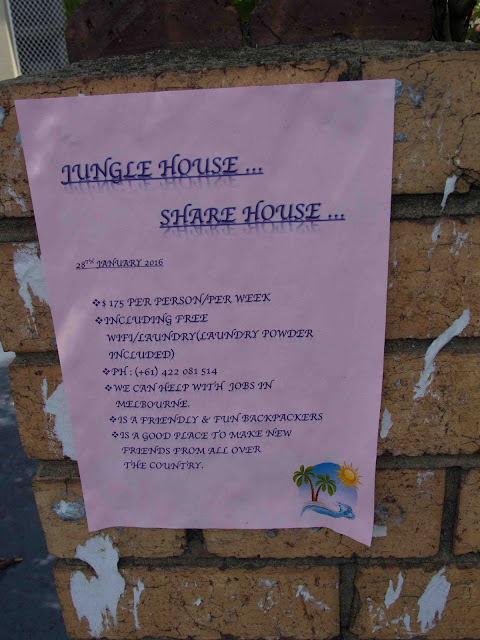 JUNGLE HOUSE ...
SHARE HOUSE ...
28TH JANUARY 2016
❖$ 175 PER PERSON/PER WEEK
❖INCLUDING FREE
WIFI/LAUNDRY(LAUNDRY POWDER
INCLUDED)
❖PH : (+61) 422 081 514
❖WE CAN HELP WITH JOBS IN
MELBOURNE.
❖IS A FRIENDLY & FUN BACKPACKERS
❖IS A GOOD PLACE TO MAKE NEW
FRIENDS FROM ALL OVER
THE COUNTRY.